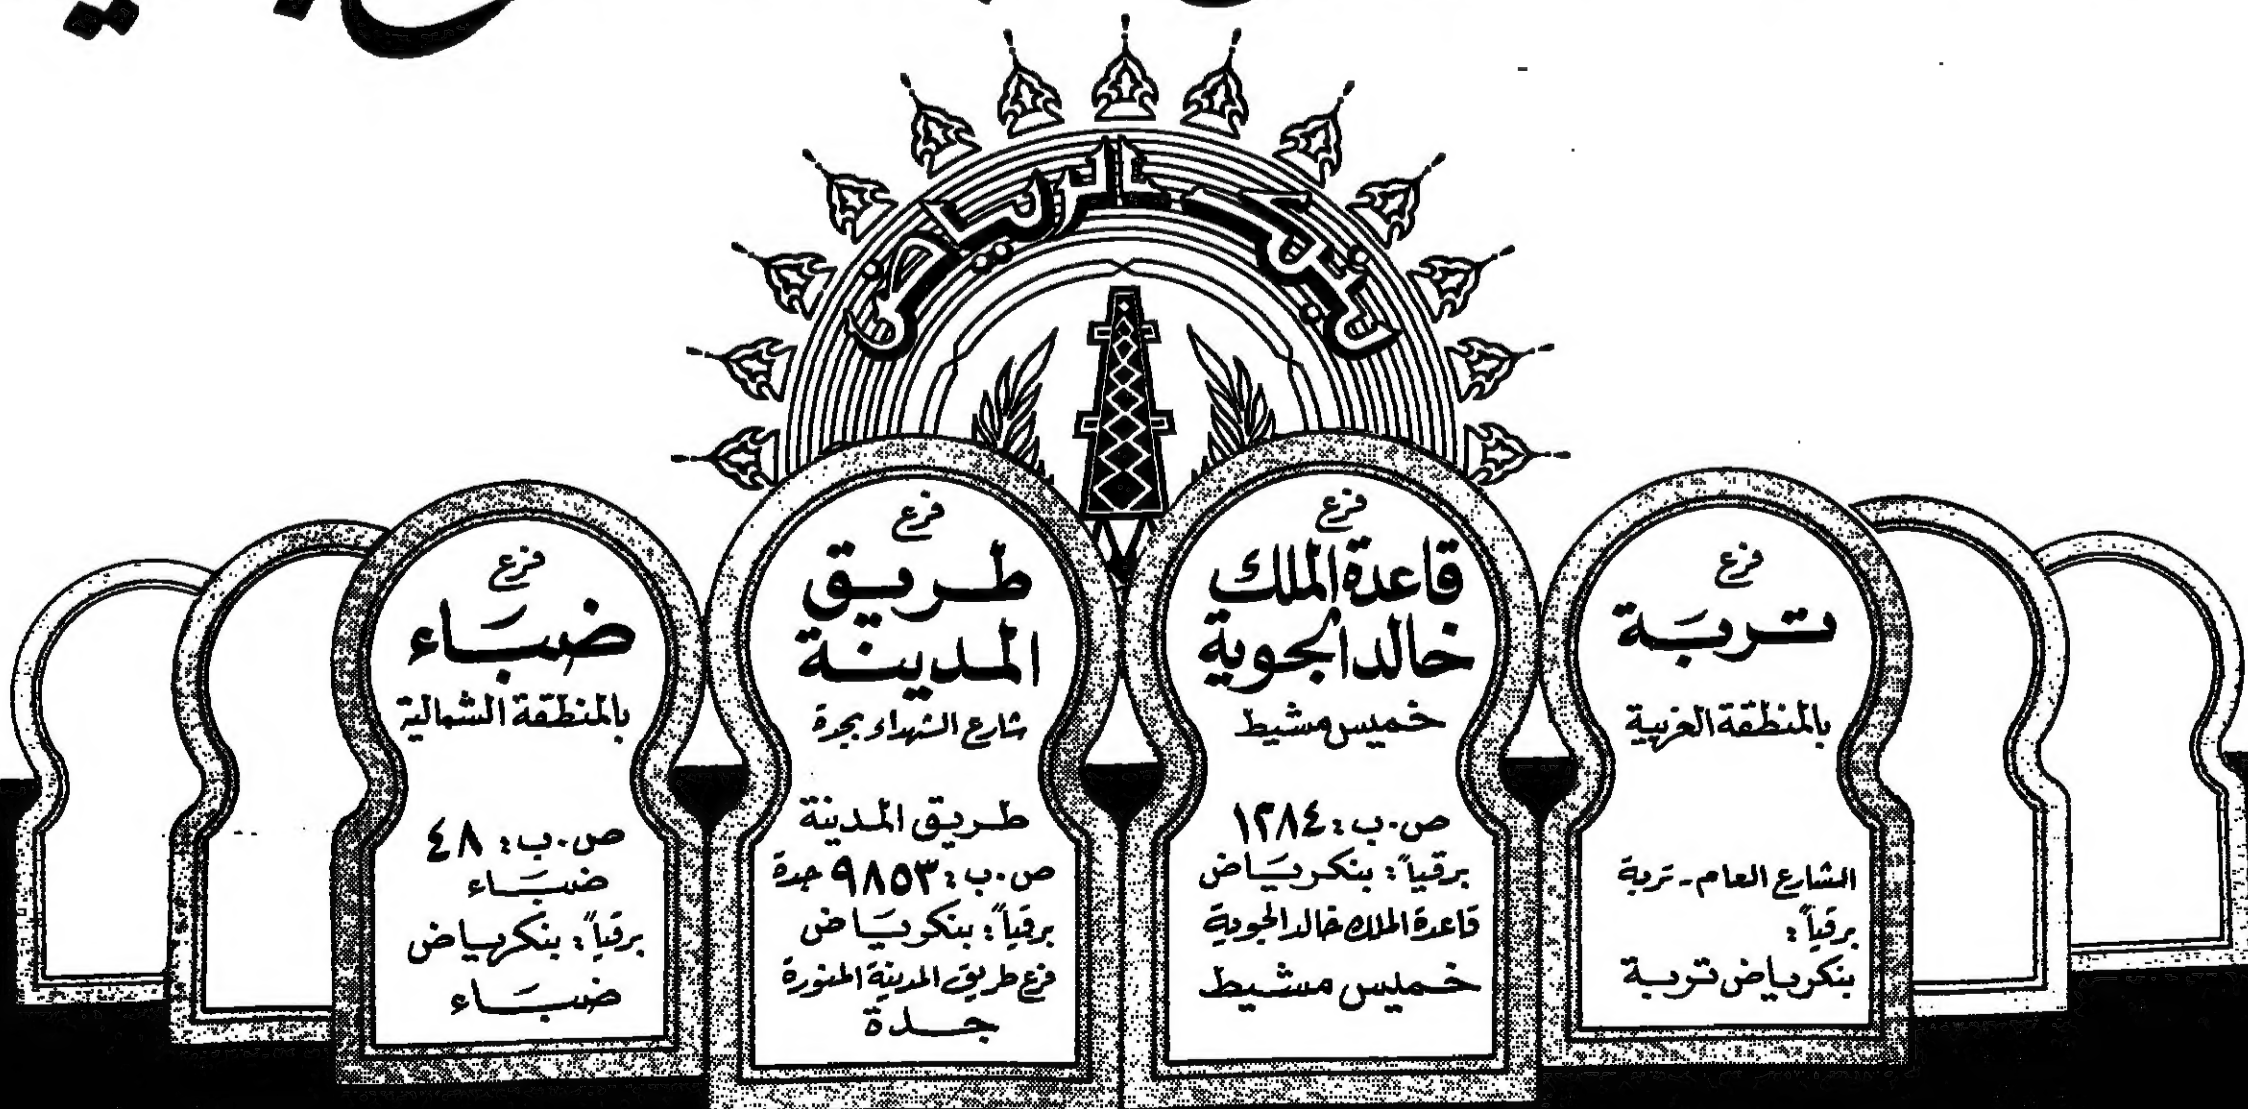 بنك الرياض
فرع
تربَة
بالمنطقة الغربية
الشارع العام - تربة
برقياً:
بنكرياض تربة
فرع
قاعدة الملك
خالد الجوية
خميس مشيط
ص.ب: ١٢٨٤
برقياً: بنكريَاض
قاعدة الملك خالد الجوية
خميس مشيط
فرع
طريق
المدينة
شارع الشهداء بجدة
طريق المدينة
ص.ب: ٩٨٥٣ جدة
برقياً: بنكريَاض
فرع طريق المدينة المنورة
جدة
فرع
ضبَاء
بالمنطقة الشمالية
ص.ب: ٤٨
ضبَاء
برقياً: بنكرياض
ضبَاء